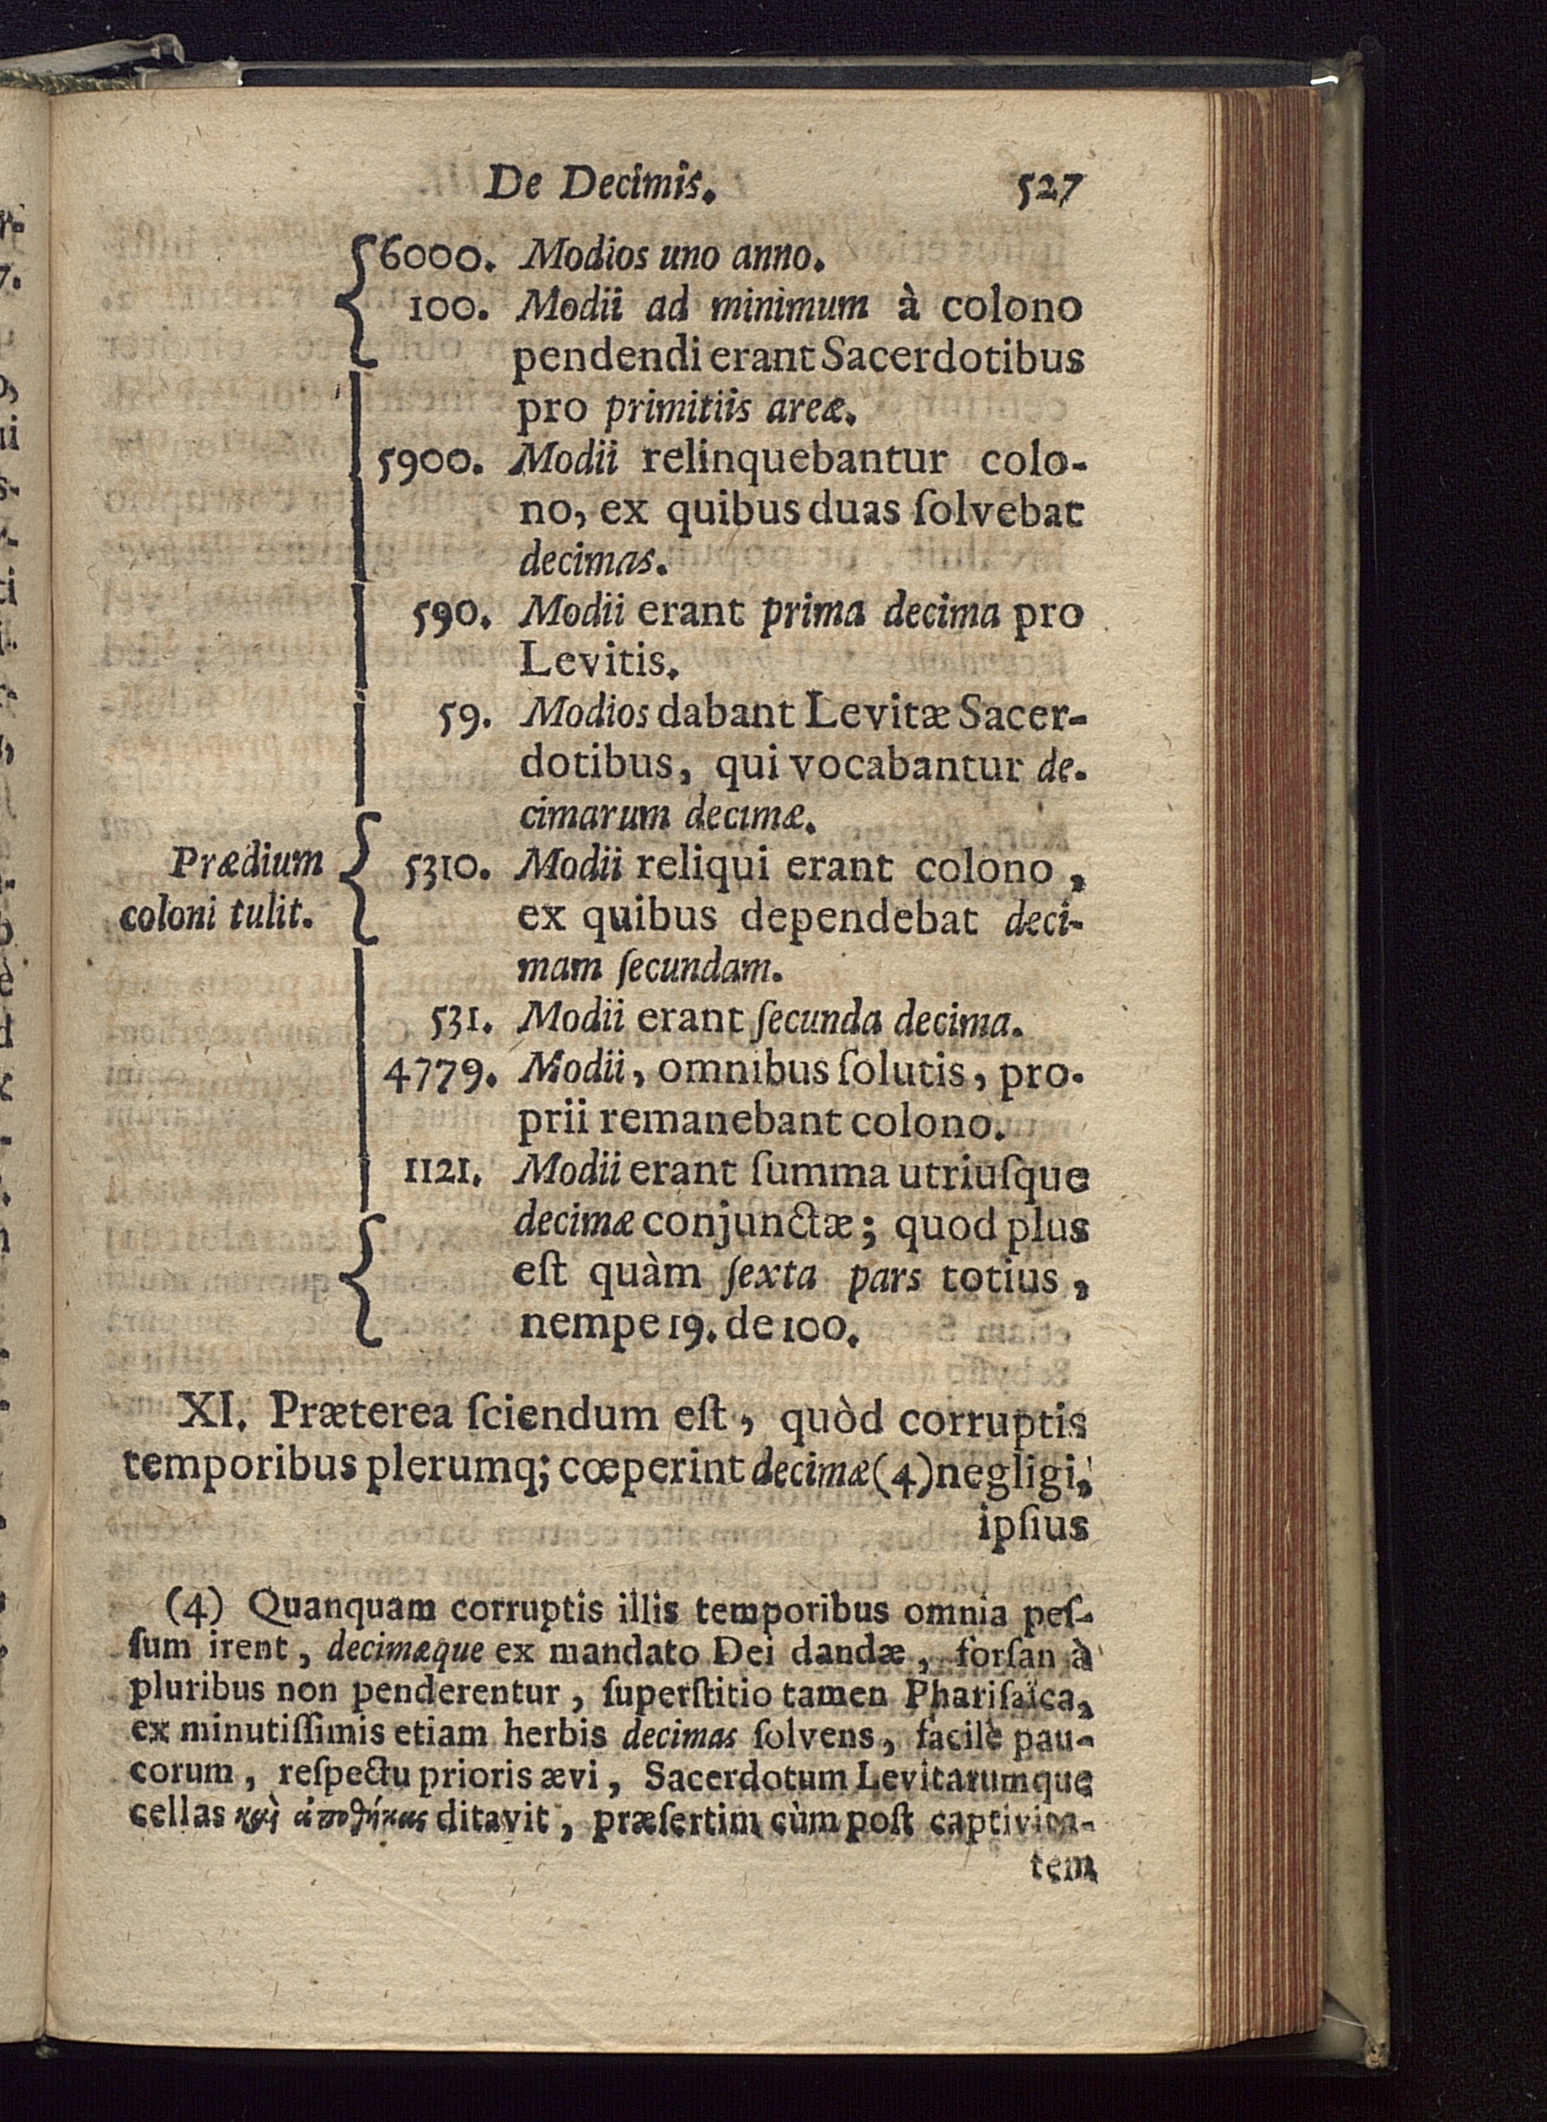 De Decimis. 527
6000. Modios uno anno.
100. Modii ad minimum à colono
pendendi erant Sacerdotibus
pro primitiis areæ.
5900. Modii relinquebantur colo-
no, ex quibus duas ſolvebat
decimas.
590. Modii erant prima decima pro
Levitis.
59. Modios dabant Levitæ Sacer-
dotibus, qui vocabantur de-
cimarum decimæ.
Prædium
coloni tulit.
5310. Modii reliqui erant colono,
ex quibus dependebat deci-
mam ſecundam.
531. Modii erant ſecunda decima.
4779. Modii, omnibus ſolutis, pro-
prii remanebant colono.
1121. Modii erant ſumma utriuſque
decimæ conjunctæ; quod plus
eſt quàm ſexta pars totius,
nempe 19. de 100.
XI. Præterea ſciendum eſt, quòd corruptis
temporibus plerumq; cœperint decimæ (4) negligi,
ipſius
(4) Quanquam corruptis illis temporibus omnia peſ-
ſum irent, decimæque ex mandato Dei dandæ, forſan à
pluribus non penderentur, ſuperſtitio tamen Phariſaïca,
ex minutiſſimis etiam herbis decimas ſolvens, facilè pau-
corum, reſpectu prioris ævi, Sacerdotum Levitarumque
cellas καὶ ἀποθήκας ditavit, præſertim cùm poſt captivita-
tem